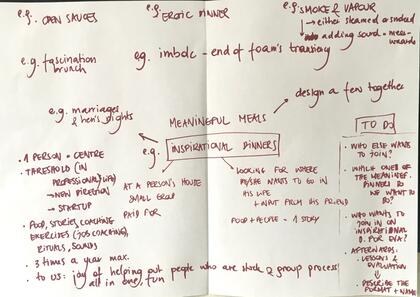 e.g. OPEN SAUCES
e.g. EROTIC DINNER
e.g. SMOKE & VAPOUR
→ either steamed or smoked
→ adding sound =
e.g. fascination
brunch
e.g. imbolc - end of foam's
e.g. marriages
& hen's nights
design a few together
MEANINGFUL MEALS
e.g. INSPIRATIONAL DINNERS
• 1 PERSON = CENTRE
THRESHOLD (IN
PROFESSIONAL/LIFE)
→ NEW DIRECTION
→ STARTUP
• FOOD, STORIES, COACHING
EXERCISES (JOB COACHING),
RITUALS, SOUNDS
• 3 times a year max.
• to us: joy of helping out people who are stuck & group process
all in one, fun
AT A PERSON'S HOUSE
SMALL GROUP
PAID FOR
LOOKING FOR WHERE
HE/SHE WANTS TO GO IN
HIS LIFE
+ INPUT FROM HIS FRIENDS
FOOD + PEOPLE = 1 STORY
TO DO
• WHO ELSE WANTS
TO JOIN?
• WHICH ONES OF
THE MEANINGF.
DINNERS DO
WE WANT TO
DO?
• WHO WANTS TO
JOIN IN ON
INSPIRATIONAL
D. FOR EVA?
• AFTERWARDS:
LESSONS &
EVALUATION
↓
DESCRIBE THE
FORMAT + NAME